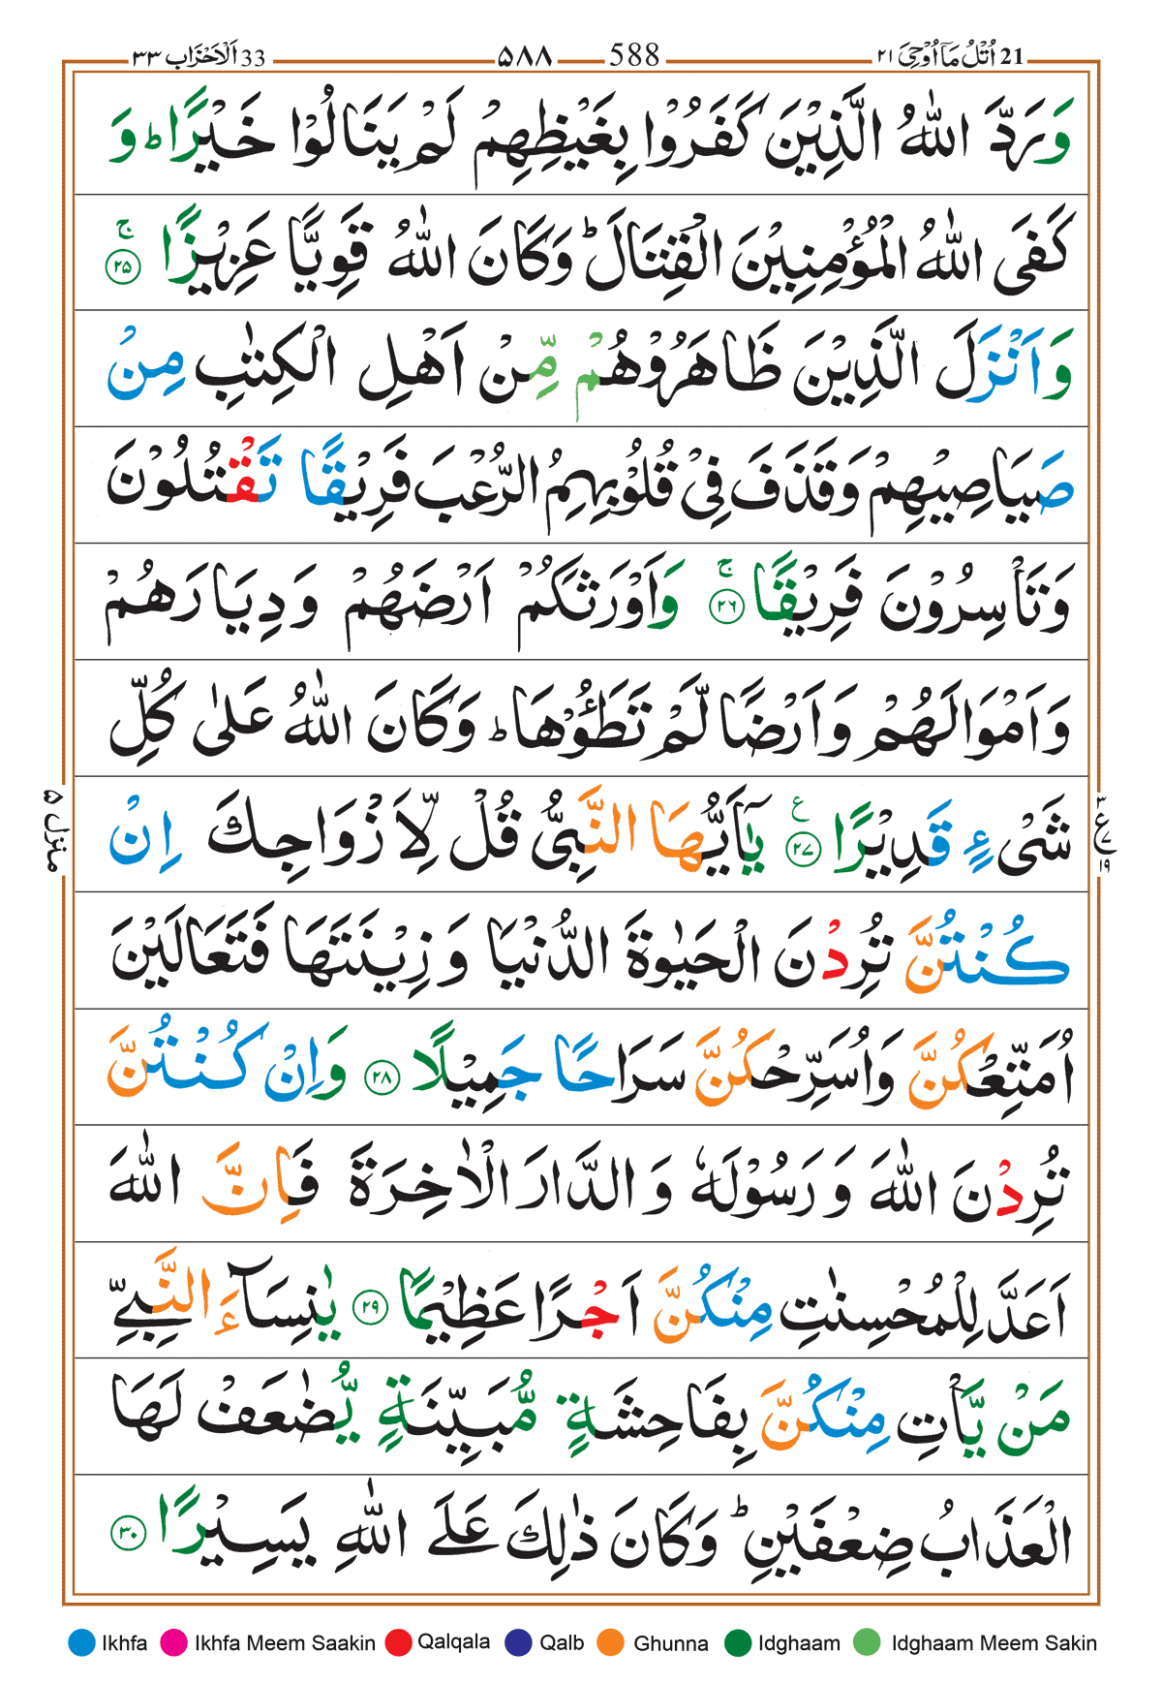 21 اُتْلُ مَاۤ اُوْحِیَ ۲۱ 588 ۵۸۸ 33 اَلْاَحْزَاب ۳۳
وَرَدَّ اللّٰهُ الَّذِیْنَ كَفَرُوْا بِغَیْظِهِمْ لَمْ یَنَالُوْا خَیْرًا ؕ وَ
كَفَی اللّٰهُ الْمُؤْمِنِیْنَ الْقِتَالَ ؕ وَكَانَ اللّٰهُ قَوِیًّا عَزِیْزًا ۚ ۲۵
وَاَنْزَلَ الَّذِیْنَ ظَاهَرُوْهُمْ مِّنْ اَهْلِ الْكِتٰبِ مِنْ
صَیَاصِیْهِمْ وَقَذَفَ فِیْ قُلُوْبِهِمُ الرُّعْبَ فَرِیْقًا تَقْتُلُوْنَ
وَتَاْسِرُوْنَ فَرِیْقًا ۚ ۲۶ وَاَوْرَثَكُمْ اَرْضَهُمْ وَدِیَارَهُمْ
وَاَمْوَالَهُمْ وَاَرْضًا لَّمْ تَطَـُٔوْهَا ؕ وَكَانَ اللّٰهُ عَلٰی كُلِّ
شَیْءٍ قَدِیْرًا ۠ ۲۷ یٰۤاَیُّهَا النَّبِیُّ قُلْ لِّاَزْوَاجِكَ اِنْ
كُنْتُنَّ تُرِدْنَ الْحَیٰوةَ الدُّنْیَا وَزِیْنَتَهَا فَتَعَالَیْنَ
اُمَتِّعْكُنَّ وَاُسَرِّحْكُنَّ سَرَاحًا جَمِیْلًا ۲۸ وَاِنْ كُنْتُنَّ
تُرِدْنَ اللّٰهَ وَرَسُوْلَهٗ وَالدَّارَ الْاٰخِرَةَ فَاِنَّ اللّٰهَ
اَعَدَّ لِلْمُحْسِنٰتِ مِنْكُنَّ اَجْرًا عَظِیْمًا ۲۹ یٰنِسَآءَ النَّبِیِّ
مَنْ یَّاْتِ مِنْكُنَّ بِفَاحِشَةٍ مُّبَیِّنَةٍ یُّضٰعَفْ لَهَا
الْعَذَابُ ضِعْفَیْنِ ؕ وَكَانَ ذٰلِكَ عَلَی اللّٰهِ یَسِیْرًا ۳۰
منزل ۵
Ikhfa Ikhfa Meem Saakin Qalqala Qalb Ghunna Idghaam Idghaam Meem Sakin